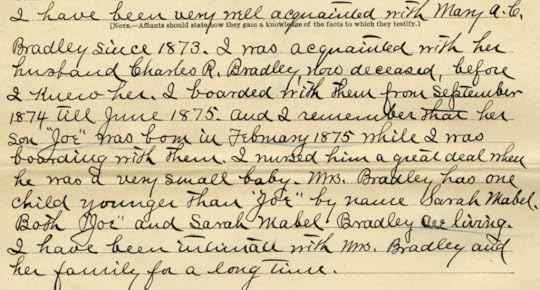 I have been very well acquainted with Mary A. C.
[NOTE.—Affiants should state how they gain a knowledge of the facts to which they testify.]
Bradley since 1873. I was acquainted with her
husband Charles R. Bradley, now deceased, before
I knew her. I boarded with them from September
1874 till June 1875. and I remember that her
son "Joe" was born in February 1875 while I was
boarding with them. I nursed him a great deal when
he was a very small baby. Mrs. Bradley has one
child younger than "Joe" by name Sarah Mabel.
Both "Joe" and Sarah Mabel Bradley are living.
I have been intimate with Mrs. Bradley and
her family for a long time.